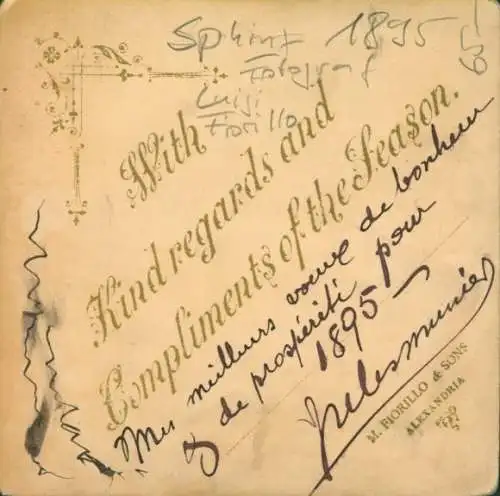 Sphinx 1895
Fotograf
Luigi
Fiorillo
65,-
With
Kind regards and
Compliments of the Season.
Mes meilleurs voeux de bonheur
& de prospérité pour
1895 —
Jules Munier
M. FIORILLO & SONS
ALEXANDRIA